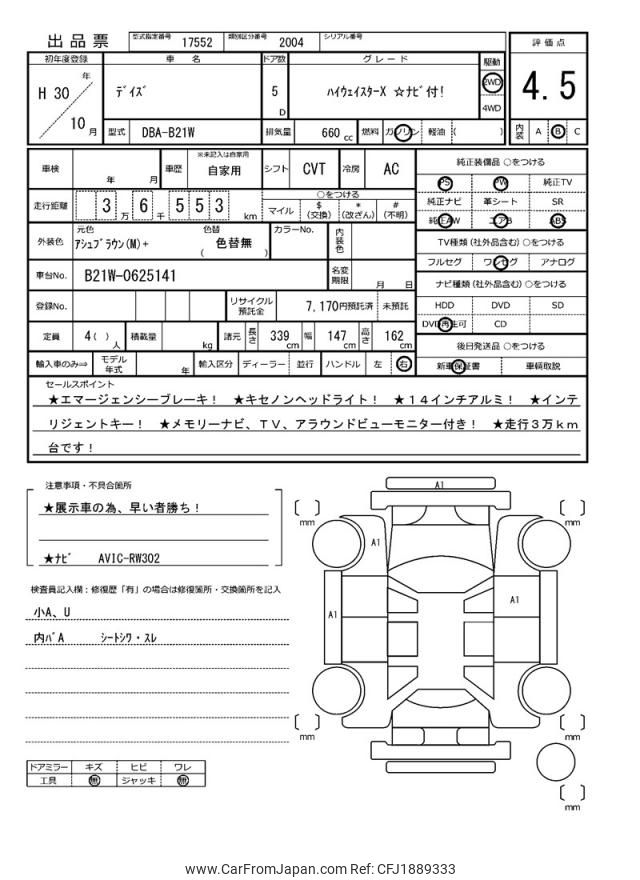 出品票 型式指定番号 17552 類別区分番号 2004 シリアル番号
評価点
4.5
内装 A B C
初年度登録 車名 ドア数 グレード 駆動
H 30 年 10 月
ﾃﾞｲｽﾞ
5 D
ﾊｲｳｪｲｽﾀｰX ☆ﾅﾋﾞ付!
2WD
4WD
型式 DBA-B21W 排気量 660 cc 燃料 ガソリン 軽油 ( )
車検 年 月 車歴 ※未記入は自家用 自家用 シフト CVT 冷房 AC
走行距離 3万 6千 5 5 3 km
○をつける
マイル $(交換) *(改ざん) #(不明)
外装色 元色 ｱｼｭﾌﾞﾗｳﾝ(M)+ 色替 ( 色替無 ) カラーNo. 内装色
車台No. B21W-0625141 名変期限 月 日
登録No. リサイクル預託金 7,170円預託済 未預託
定員 4( ) 人 積載量 kg 諸元 長さ 339 cm 幅 147 cm 高さ 162 cm
輸入車のみ⇒ モデル年式 年 輸入区分 ディーラー 並行 ハンドル 左 右
純正装備品 ○をつける
PS PW 純正TV
純正ナビ 革シート SR
純正AW エアB ABS
TV種類(社外品含む)○をつける
フルセグ ワンセグ アナログ
ナビ種類(社外品含む)○をつける
HDD DVD SD
DVD再生可 CD
後日発送品 ○をつける
新車保証書 車輌取説
セールスポイント
★エマージェンシーブレーキ! ★キセノンヘッドライト! ★14インチアルミ! ★インテ
リジェントキー! ★メモリーナビ、TV、アラウンドビューモニター付き! ★走行3万km
台です!
注意事項・不具合箇所
★展示車の為、早い者勝ち!
★ﾅﾋﾞ AVIC-RW302
検査員記入欄:修復歴「有」の場合は修復箇所・交換箇所を記入
小A、U
内ﾊﾟA ｼｰﾄｼﾜ・ｽﾚ
ドアミラー キズ ヒビ ワレ
工具 無 ジャッキ 無
A1
A1
A1
A1
mm
mm
mm
mm
mm
www.CarFromJapan.com Ref: CFJ1889333